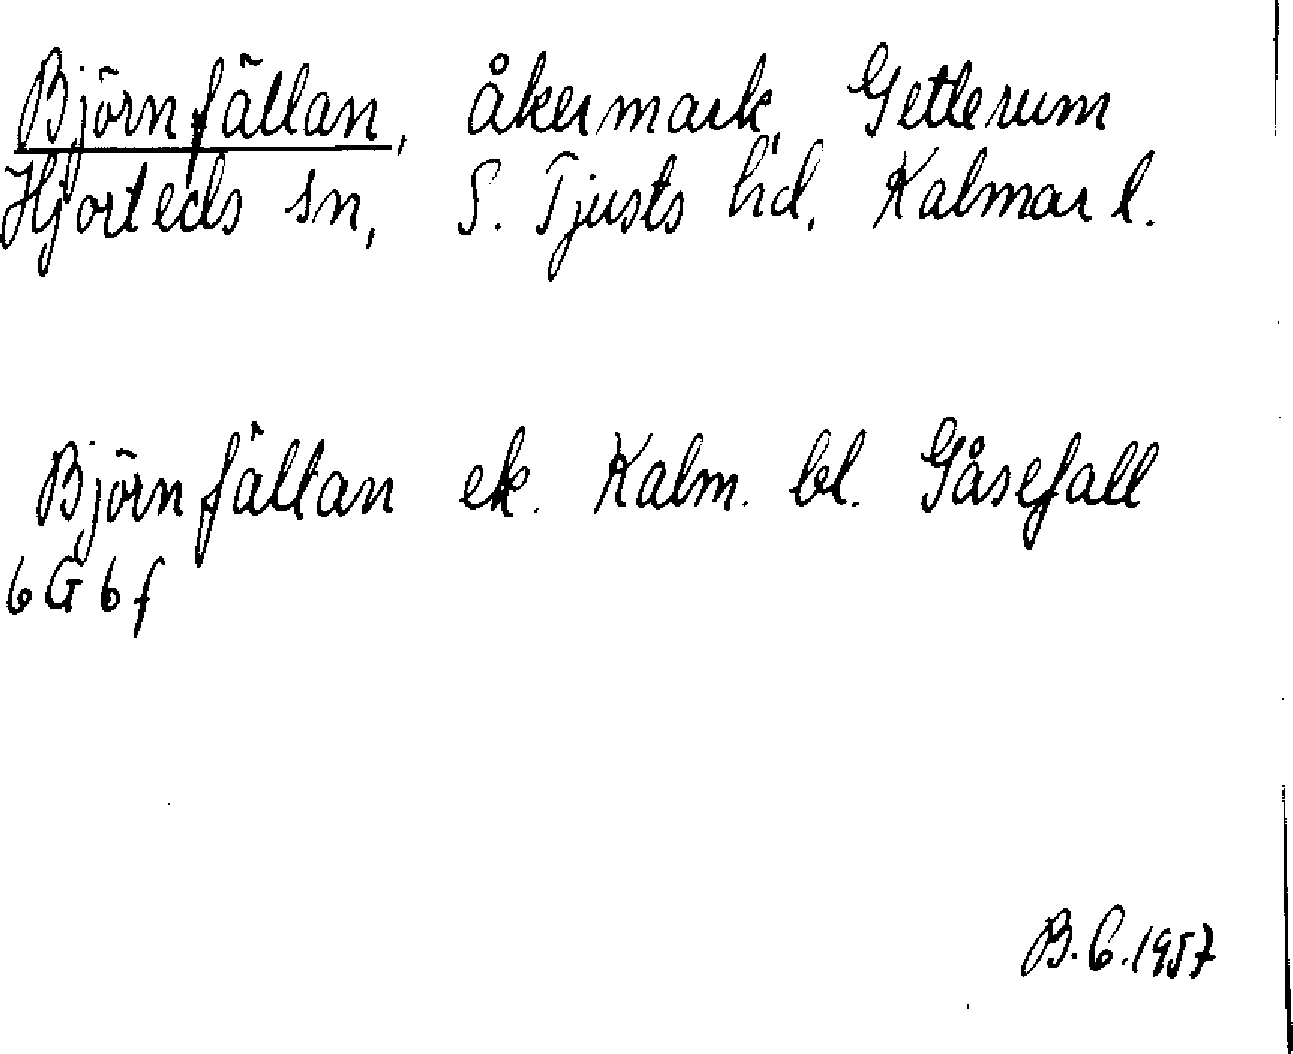 Björnfällan, åkermark, Getterum
Hjorteds sn, S. Tjusts hd, Kalmar l.
Björnfällan ek. Kalm. bl. Gåsefall
6G6f
B.C.1957